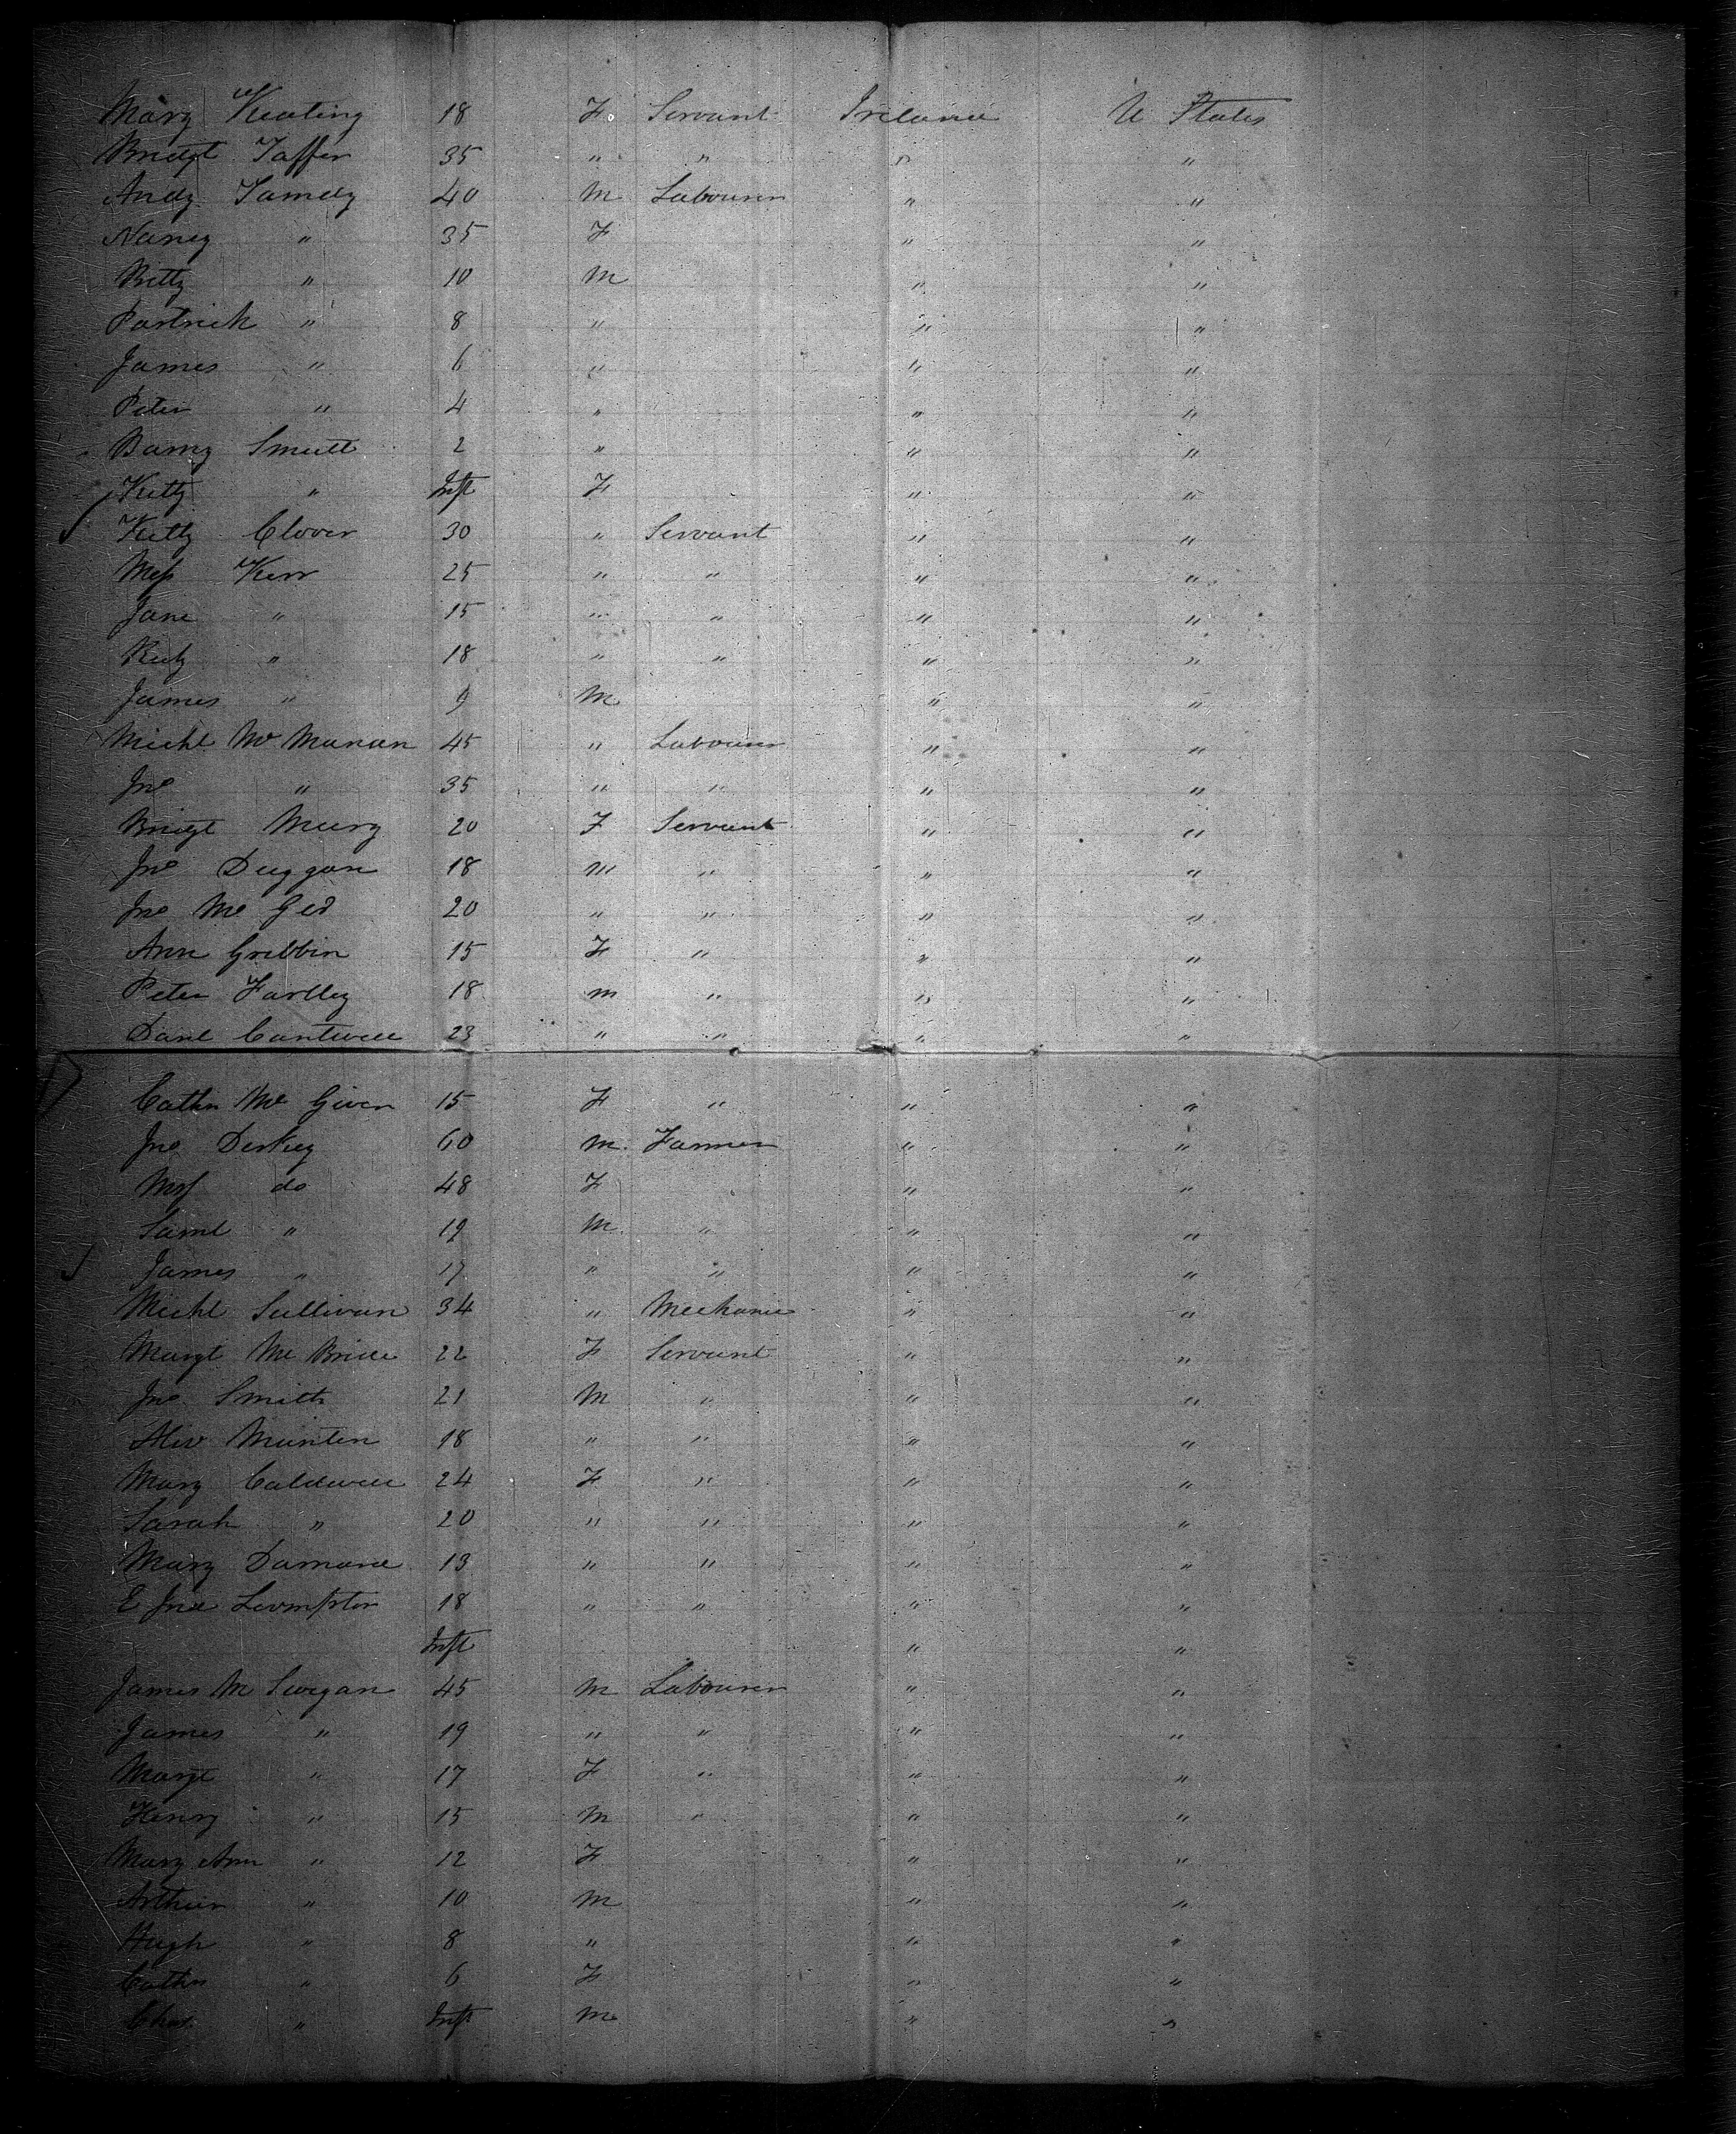 Mary Keating 18 F. Servant Ireland U States
Bridgt Taffer 35 " " " "
Andy Tamdy 40 M Labourer " "
Nancy " 35 F " "
Bitty " 10 M " "
Partrick " 8 " " "
James " 6 " " "
Peter " 4 " " "
Barny Smutt 2 " " "
Kitty " Inft F " "
Kitty Clover 30 " Servant " "
Kerr 25 " " " "
Jane " 15 " " " "
" 18 " " " "
James " 9 M " "
Michl Mc Manan 45 " Labourer " "
Jno " 35 " " " "
Bridgt Murry 20 F Servant " "
Jno Duggan 18 M " " "
Jno Mc Ged 20 " " " "
Ann Gribbin 15 F " " "
Peter Farlley 18 M " " "
Danl Cantwell 23 " " " "
Cathn Mc Given 15 F " " "
Jno Derkey 60 M. Farmer " "
Mrs do 48 F " "
Saml " 19 M " " "
James " 17 " " " "
Michl Sullivan 34 " Mechanic " "
Margt Mc Bride 22 F Servant " "
Jno Smith 21 M " " "
Munten 18 " " " "
Mary Caldwell 24 F " " "
Sarah " 20 " " " "
Mary Damond 13 " " " "
E Jna 18 " " " "
Inft " "
James M Swegan 45 M Labourer " "
James " 19 " " " "
Margt " 17 F " " "
Henry " 15 M " " "
Mary Ann " 12 F " "
Arthur " 10 M " "
Hugh " 8 " " "
Cathn " 6 F " "
Chas " Inft M " "